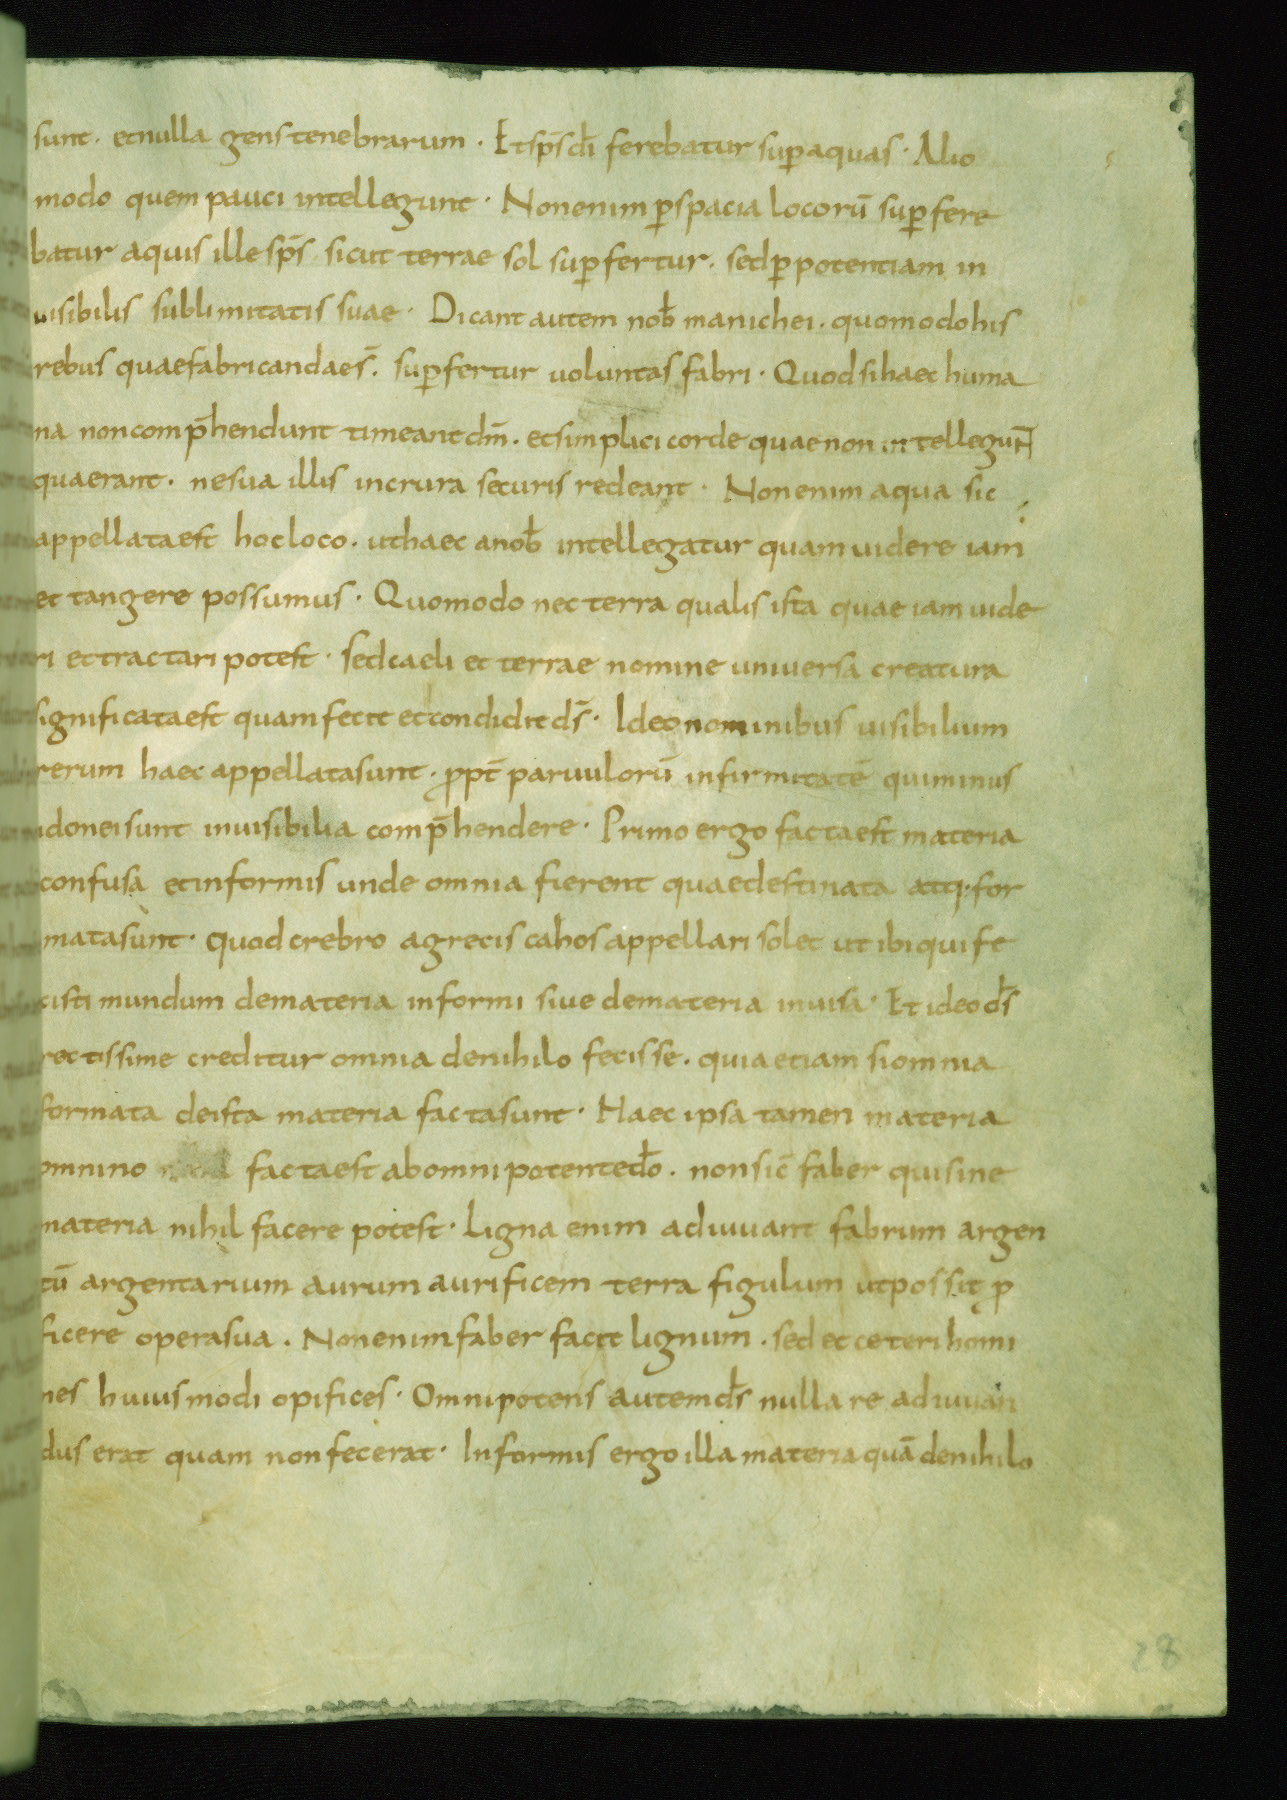 sunt. et nulla gens tenebrarum. Et sp̄s dī ferebatur sup̱ aquas. Alio
modo quem pauci intellegunt. Non enim p̱ spacia locorū sup̱fere
batur aquis ille sp̄s sicut terrae sol sup̱fertur. sed p̱ potentiam in
uisibilis sublimitatis suae. Dicant autem nob̄ manichei. quomodo his
rebus quae fabricandae s̄. sup̱fertur uoluntas fabri. Quod si haec huma
na non comp̄hendunt timeant dm̄. et simplici corde quae non intellegunt
quaerant. ne sua illis in crura securis redeant. Non enim aqua sic
appellata est hoc loco. ut haec a nob̄ intellegatur quam uidere iam
et tangere possumus. Quomodo nec terra qualis ista quae iam uide
ri et tractari potest. sed caeli et terrae nomine uniuersa creatura
significata est quam fecit et condidit ds̄. Ideo nominibus uisibilium
rerum haec appellata sunt. ꝓpt̄ paruulorū infirmitatē qui minus
idonei sunt inuisibilia comp̄hendere. Primo ergo facta est materia
confusa et informis unde omnia fierent quae destinata atq. for
mata sunt. quod crebro a grecis cahos appellari solet ut ibi qui fe
cisti mundum de materia informi siue de materia inuisa. Et ideo ds̄
rectissime creditur omnia de nihilo fecisse. quia etiam si omnia
formata de ista materia facta sunt. Haec ipsa tamen materia
omnino facta est ab omnipotente dō. non sic̄ faber qui sine
materia nihil facere potest. Ligna enim adiuuant fabrum argen
tū argentarium aurum aurificem terra figulum ut possit ꝓ
ficere opera sua. Non enim faber facit lignum. sed et ceteri homi
nes huiusmodi opifices. Omnipotens autem ds̄ nulla re adiuuan
dus erat quam non fecerat. Informis ergo illa materia quā de nihilo
28